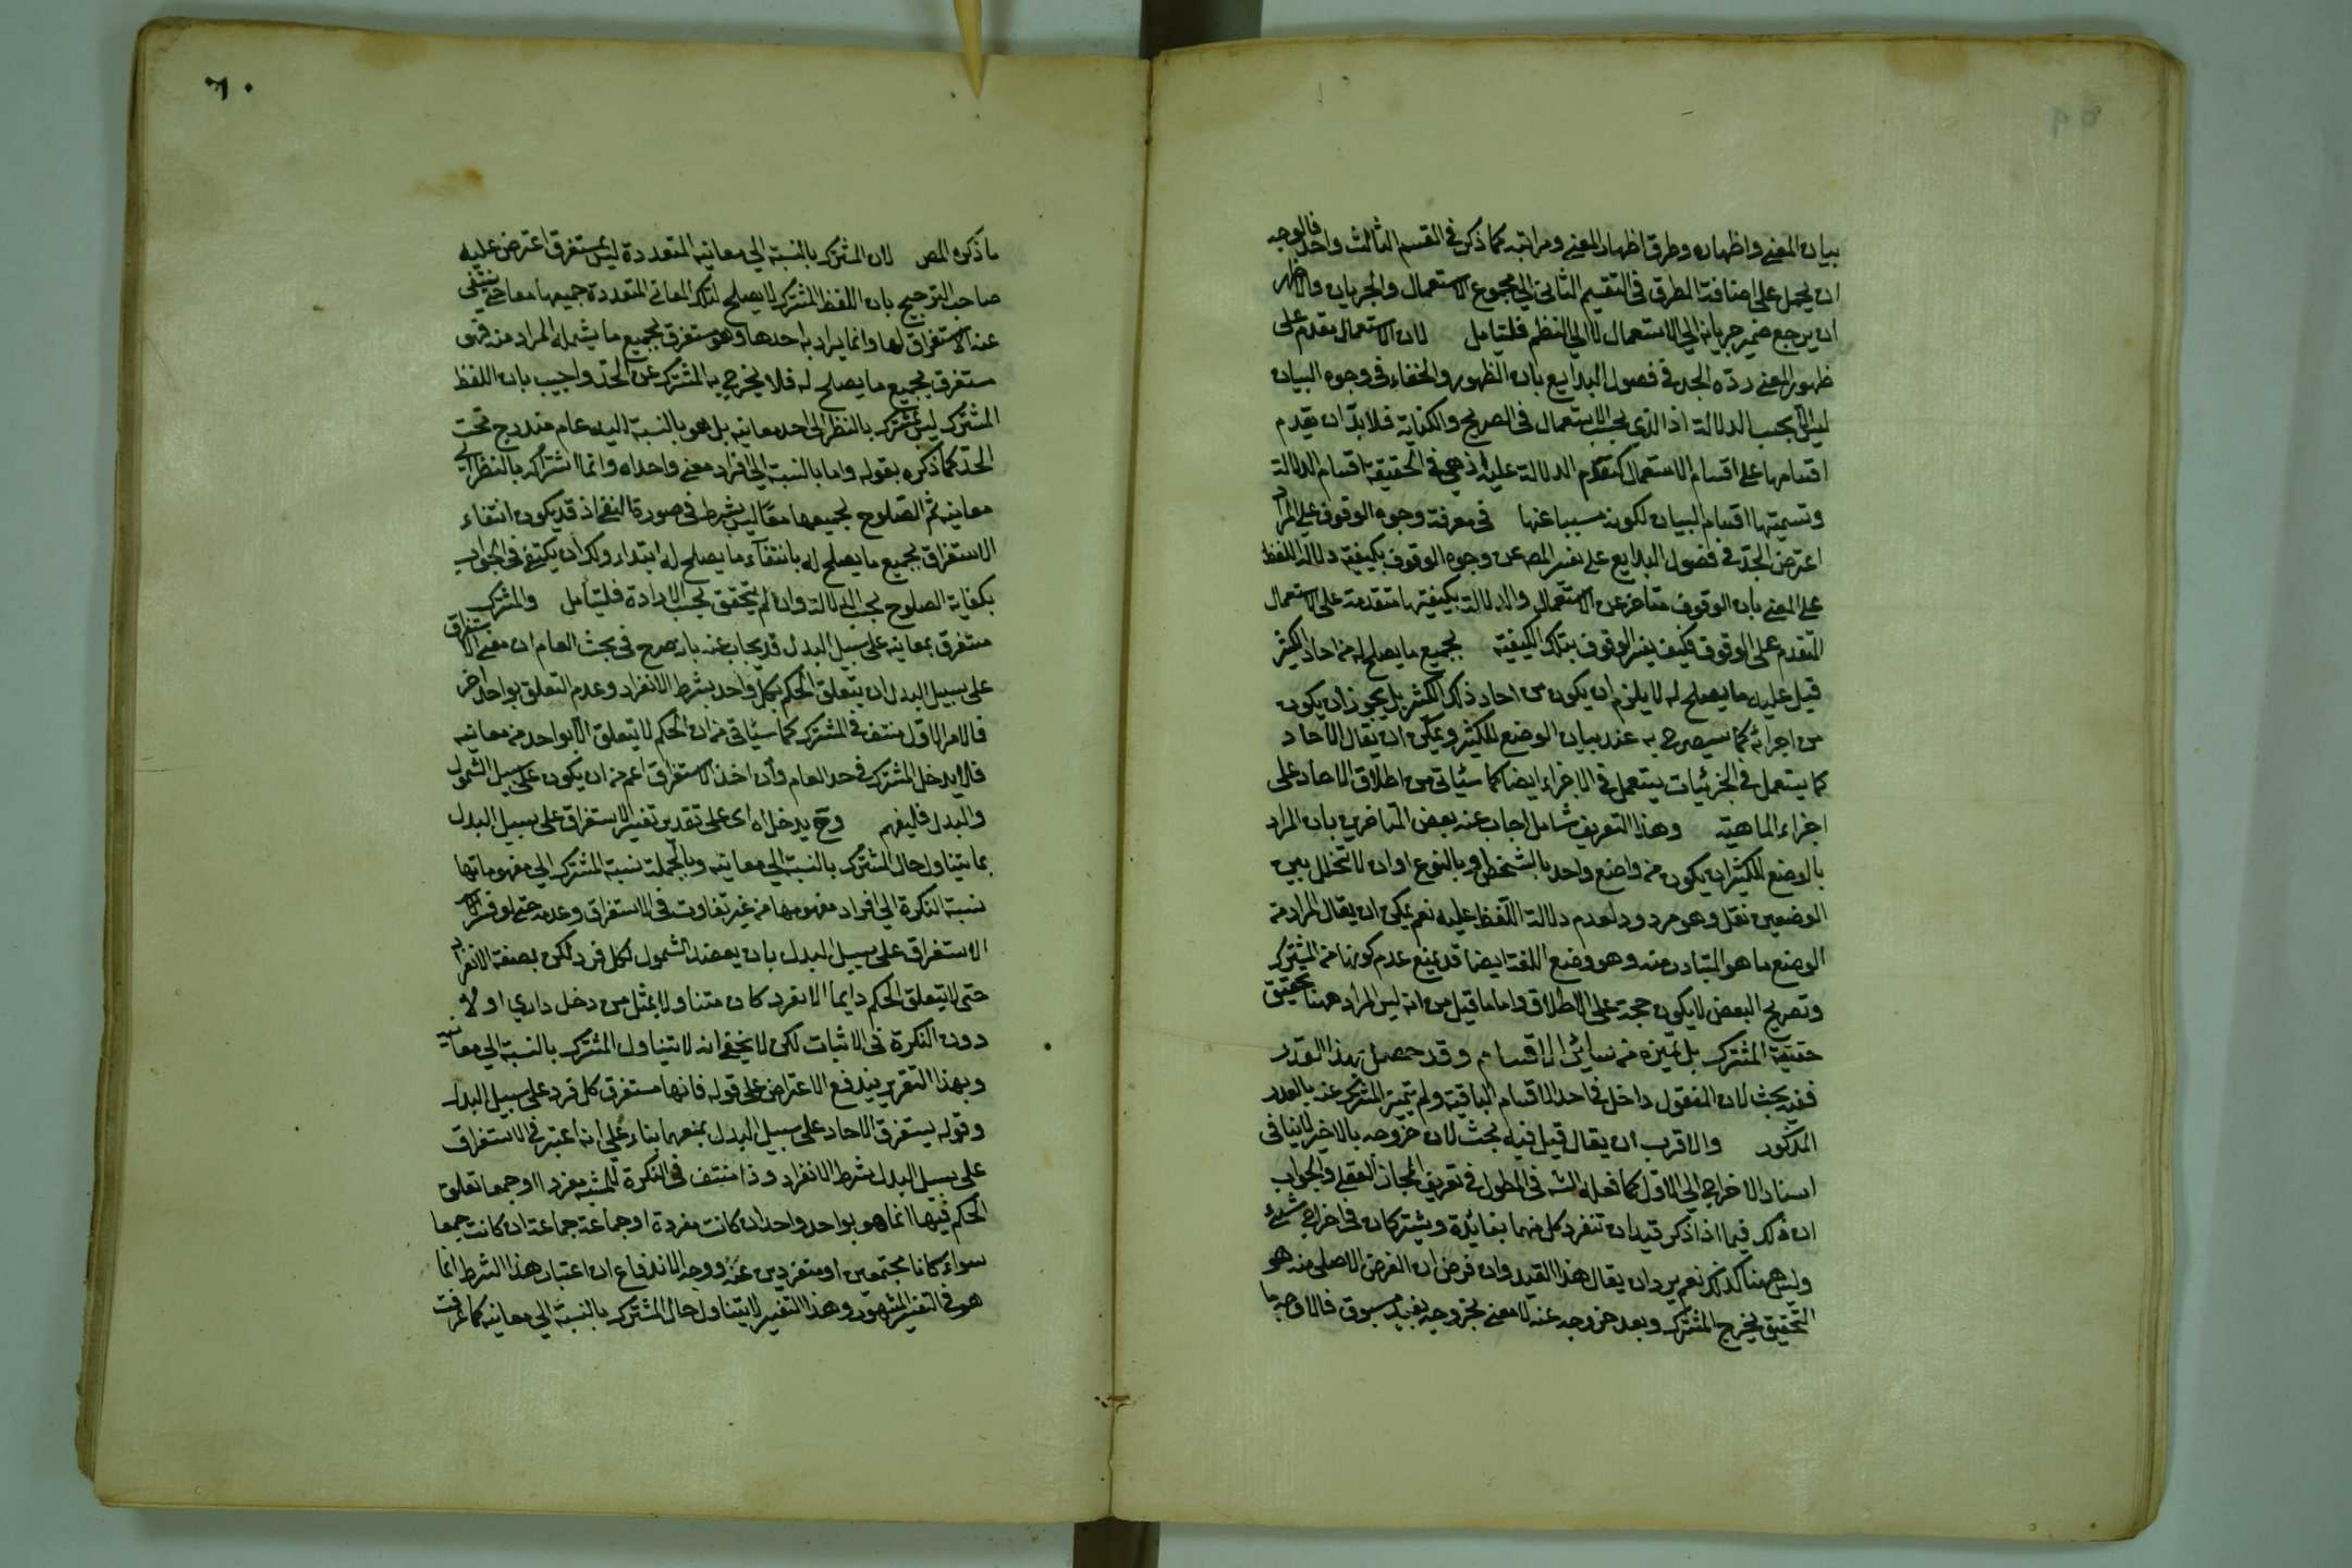 بيان المعنى واظهاره وطرق اظهار المعنى ومراتبه كما ذكر في القسم الثالث واحد فالوجه
ان يحمل على اضافة الطرق في التقسيم الثاني الى مجموع الاستعمال والجريان والاظهر
ان يرجع ضمير جريانه الى الاستعمال لا الى النظم فليتامل لان الاستعمال مقدم على
ظهور المعنى رده الجد في فصول البدايع بان الظهور والخفاء في وجوه البيان
ليس الا بحسب الدلالة اذ الذي بحسب الاستعمال في الصريح والكناية فلا بد ان يقدم
اقسامها على اقسام الاستعمال كتقدم الدلالة عليه اذ هي في الحقيقة اقسام الدلالة
وتسميتها اقسام البيان لكونه مسببا عنها في معرفة وجوه الوقوف على المراد
اعترض الجد في فصول البدايع على تفسير المص عن وجوه الوقوف بكيفية دلالة اللفظ
على المعنى بان الوقوف متاخر عن الاستعمال والدلالة بكيفيتها متقدمة على الاستعمال
المتقدم على الوقوف فكيف يفسر الوقوف بتلك الكيفية بجميع ما يصلح له من احاد الكثير
قيل عليه ما يصلح له لا يلزم ان يكون من احاد ذلك الكثير بل يجوز ان يكون
من اجزائه كما سيصرح به عند بيان الوضع للكثير ويمكن ان يقال الاحاد
كما يستعمل في الجزئيات يستعمل في الاجزاء ايضا كما سيأتي من اطلاق الاحاد على
اجزاء الماهية وهذا التعريف شامل اجاب عنه بعض المتاخرين بان المراد
بالوضع للكثير ان يكون من واضع واحد بالشخص او بالنوع او ان لا تخلل بين
الوضعين نقل وهو مردود لعدم دلالة اللفظ عليه نعم يمكن ان يقال المراد من
الوضع ما هو المتبادر منه وهو وضع اللغة ايضا قد يمنع عدم كونها من المشترك
وتصريح البعض لا يكون حجة على الاطلاق واما ما قيل من انه ليس المراد ههنا تحقيق
حقيقة المشترك بل تميزه من سائر الاقسام وقد حصل بهذا القدر
ففيه بحث لان المنقول داخل في احد الاقسام الباقية ولم يتميز المشترك عنه بالقدر
المذكور والاقرب ان يقال قيل فيه بحث لان خروجه بالاخير لا ينافي
اسناد الاخراج الى الاول كما فعله الشه في المطول في تعريف المجاز العقلي والجواب
ان ذلك فيما اذا ذكر قيدان تنفرد كل منهما بفائدة ويشتركان في اخراج شيء
وليس ههنا كذلك نعم يرد ان يقال هذا القيد وان فرض ان الغرض الاصلي منه هو
التحقيق يخرج المشترك وبعد خروجه عنه لا معنى لخروجه بقيد مسبوق فالاوجه ما
٦٠
ما ذكره المص لان المشترك بالنسبة الى معانيه المتعددة ليس بمستغرق اعترض عليه
صاحب الترجيح بان اللفظ المشترك لا يصلح لتلك المعاني المتعددة جميعها معا حتى ينتفي
عنه الاستغراق لها وانما يراد به احدها وهو مستغرق لجميع ما يشمله المراد منه فهو
مستغرق لجميع ما يصلح له فلا يخرج به المشترك عن الحد واجيب بان اللفظ
المشترك ليس بمشترك بالنظر الى احد معانيه بل هو بالنسبة اليه عام مندرج تحت
الحد كما ذكره بقوله واما بالنسبة الى افراد معنى واحد اه وانما اشتراكه بالنظر الى
معانيه ثم الصلوح لجميعها معا ليس بشرط في صورة النفي اذ قد يكون انتفاء
الاستغراق لجميع ما يصلح له بانتفاء ما يصلح له ابتداء ولك ان يكتفي في الجواب
بكفاية الصلوح بحسب الدلالة وان لم يتحقق بحسب الارادة فليتأمل والمشترك
مستغرق بمعانيه على سبيل البدل قد يجاب عنه بانه صرح في بحث العام ان معنى الاستغراق
على سبيل البدل ان يتعلق الحكم بكل واحد بشرط الانفراد وعدم التعلق بواحد اخر
فالامر الاول منتف في المشترك كما سيأتي من ان الحكم لا يتعلق الا بواحد من معانيه
فلا يدخل المشترك في حد العام وان اخذ الاستغراق اعم من ان يكون على سبيل الشمول
والبدل فليفهم وح يدخل اه اى على تقدير تفسير الاستغراق على سبيل البدل
بما يتناول حال المشترك بالنسبة الى معانيه وبالجملة نسبة المشترك الى مفهوماتها
نسبة النكرة الى افراد مفهومها من غير تفاوت في الاستغراق وعدمه حتى لو فسر
الاستغراق على سبيل البدل بان يقصد الشمول لكل فرد لكن بصفة الانفراد
حتى لا يتعلق الحكم دايما الا بفرد كان متناولا بمثل من دخل داري اولا
دون النكرة في الاثبات لكن لا يخفى انه لا يتناول المشترك بالنسبة الى معانيه
وبهذا التقرير يندفع الاعتراض على قوله فانها مستغرق كل فرد على سبيل البدل
وقوله يستغرق الاحاد على سبيل البدل بمنعهما بناء على انه اعتبر في الاستغراق
على سبيل البدل شرط الانفراد وذا منتف في النكرة المثبتة مفردا او جمعا تعلق
الحكم فيها انما هو بواحد واحد ان كانت مفردة او جماعة جماعة ان كانت جمعا
سواء كانا مجتمعين او منفردين عنه ووجه الاندفاع ان اعتبار هذا الشرط انما
هو في التفسير المشهور وهذا التفسير لا يتناول حال المشترك بالنسبة الى معانيه كما عرفت